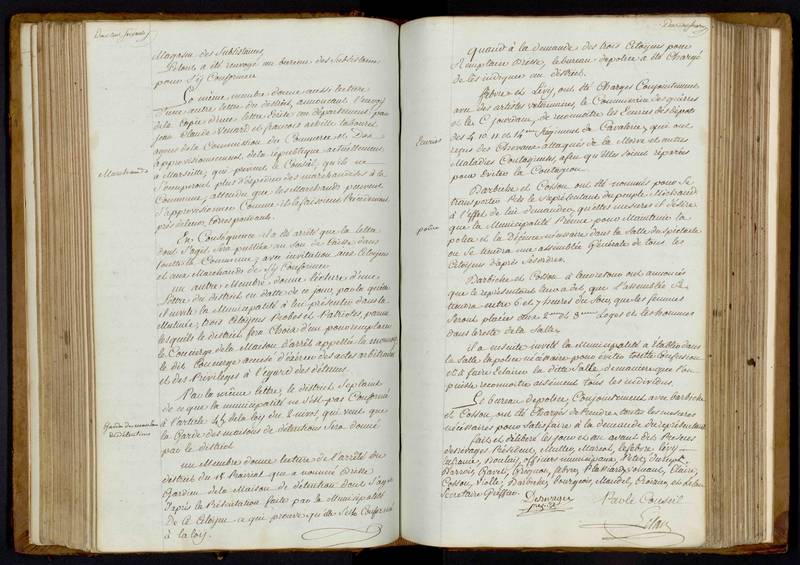 Magasin des Subsistances,
Le tout a été renvoyé au bureau des Subsistances
pour s'y Conformer
Le même membre donne aussi lecture
d'une autre lettre du district, annonçant l'envoy
de la copie d'une lettre Ecrite au département, par
Jean Claude et françois
agens de la Commission du Commerce et Des
approvisionnemens de la république actuellement
Marchands
à Marseille, qui prévient le Conseil, qu'ils ne
plus d'expédier des marchandises à la
Commune, attendu que les Marchands peuvent
s'approvisionner Comme ils le faisaient Précédemment
près de leurs Correspondants.
En Conséquence il a été arrêté que la lettre
dont s'agit, Sera publiée au Son de Caisse dans
toutte la Commune, avec invitation aux Citoyens
et aux Marchands de S'y Conformer
un autre Membre donne lecture d'une
Lettre du district en datte de ce jour, par la quelle
il invite la Municipalité à lui présenter dans la
Matinée, trois Citoyens Probes et Patriotes, parmi
lesquels le district fera Choix d'un pour remplacer
le Concierge de la Maison d'arrêt appellée la monnoye
le dit Concierge accusé d'Exercer des actes arbitraires
et des Privilèges à l'égard des détenus.
Par la même lettre, le district Se plaint
Garde des maisons
de détentions
de ce que la municipalité ne s'est pas Conformé
à l'article de la loy du 2 nivos, qui veut que
la Garde des maisons de détentions Sera donné
par le district
un Membre donne lecture de l'arrêté Du
district du 15 Prairial qui a nommé Brisse
Gardien de la Maison de détention Dont S'agit
d'après la Présentation faite par la Municipalité
De Ce Citoyen ce qui prouve qu'elle S'est Conformé
à la loy.
quand à la demande des trois Citoyens pour
Remplacer Brisse, le bureau de police a été Chargé
de les indiquer au district.
fabre et Levy, ont été Chargés Conjointement
avec des artistes vétérinaires, le Commissaire des guerres
Ecuries
et le C. Jourdain, de reconnoitre les Ecuries des dépots
des 4. 10. 11 et 14eme Régiment de Cavalerie, qui ont
reçus des Chevaux attaqués de la Morve et autres
Maladies Contagieuses, afin qu'elles soient réparées
pour éviter la Contagion.
Barbiche et Cosson ont été nommés pour Se
transporter Près le Représentant du peuple Michaud
police
à l'effet de lui demander, quelles mesures il désire
que la Municipalité Prenne pour Maintenir la
police et la Décence nécessaire dans la Salle du Spectacle
ou Se tiendra une assemblée Générale de tous les
Citoyens d'après Sa
Barbiche et Cosson à leur retour ont annoncés
que le représentant leur a dit, que l'assemblée Se
tiendra entre 6 et 7 heures du Soir, que les femmes
Seront placées aux 2eme et 3eme Loges et les hommes
dans le reste de la Salle.
il a ensuite invité la Municipalité à Etablir dans
la Salle la police nécessaire pour éviter toutte Confusion
et à faire Eclairer la ditte Salle de manière que l'on
puisse reconnoitre aisément tous les individus.
Le bureau de police, Conjointement avec barbiche
et Cosson, ont été Chargés de Prendre toutes les mesures
nécessaires pour Satisfaire à la demande du représentant
fait et délibéré les jour et an avant dits Présens
Président, Muller, Marcol, lefebvre, Levy
officiers municipaux, Petit,
Ravel, Grignon, fabre, Claire,
Cosson, Viollé, Barbiche, Bourgeois,
Secrétaire Greffier
Par le Conseil